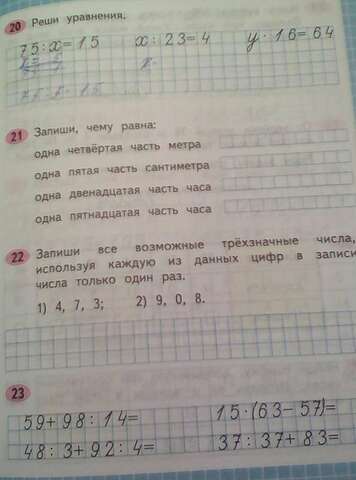 20 Реши уравнения.
75 : x = 15 x : 23 = 4 y · 16 = 64
21 Запиши, чему равна:
одна четвёртая часть метра
одна пятая часть сантиметра
одна двенадцатая часть часа
одна пятнадцатая часть часа
22 Запиши все возможные трёхзначные числа,
используя каждую из данных цифр в записи
числа только один раз.
1) 4, 7, 3; 2) 9, 0, 8.
23
59 + 98 : 14 = 15 · (63 − 57) =
48 : 3 + 92 : 4 = 37 : 37 + 83 =